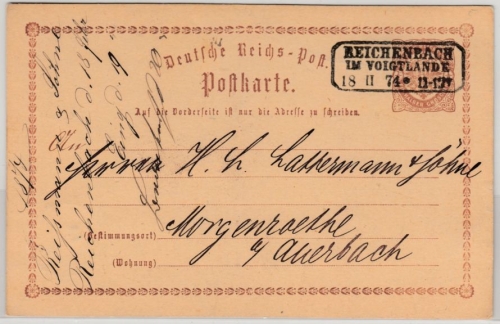 Deutsche Reichs-Post.
Postkarte.
REICHENBACH
IM VOIGTLANDE
18 II 74 * 11-12V
Auf die Vorderseite ist nur die Adresse zu schreiben.
An
Herren H. L. Lattermann & Söhne
Morgenroethe
(Bestimmungsort)
a/ Auerbach
(Wohnung)
1874
Reichenbach d. 18